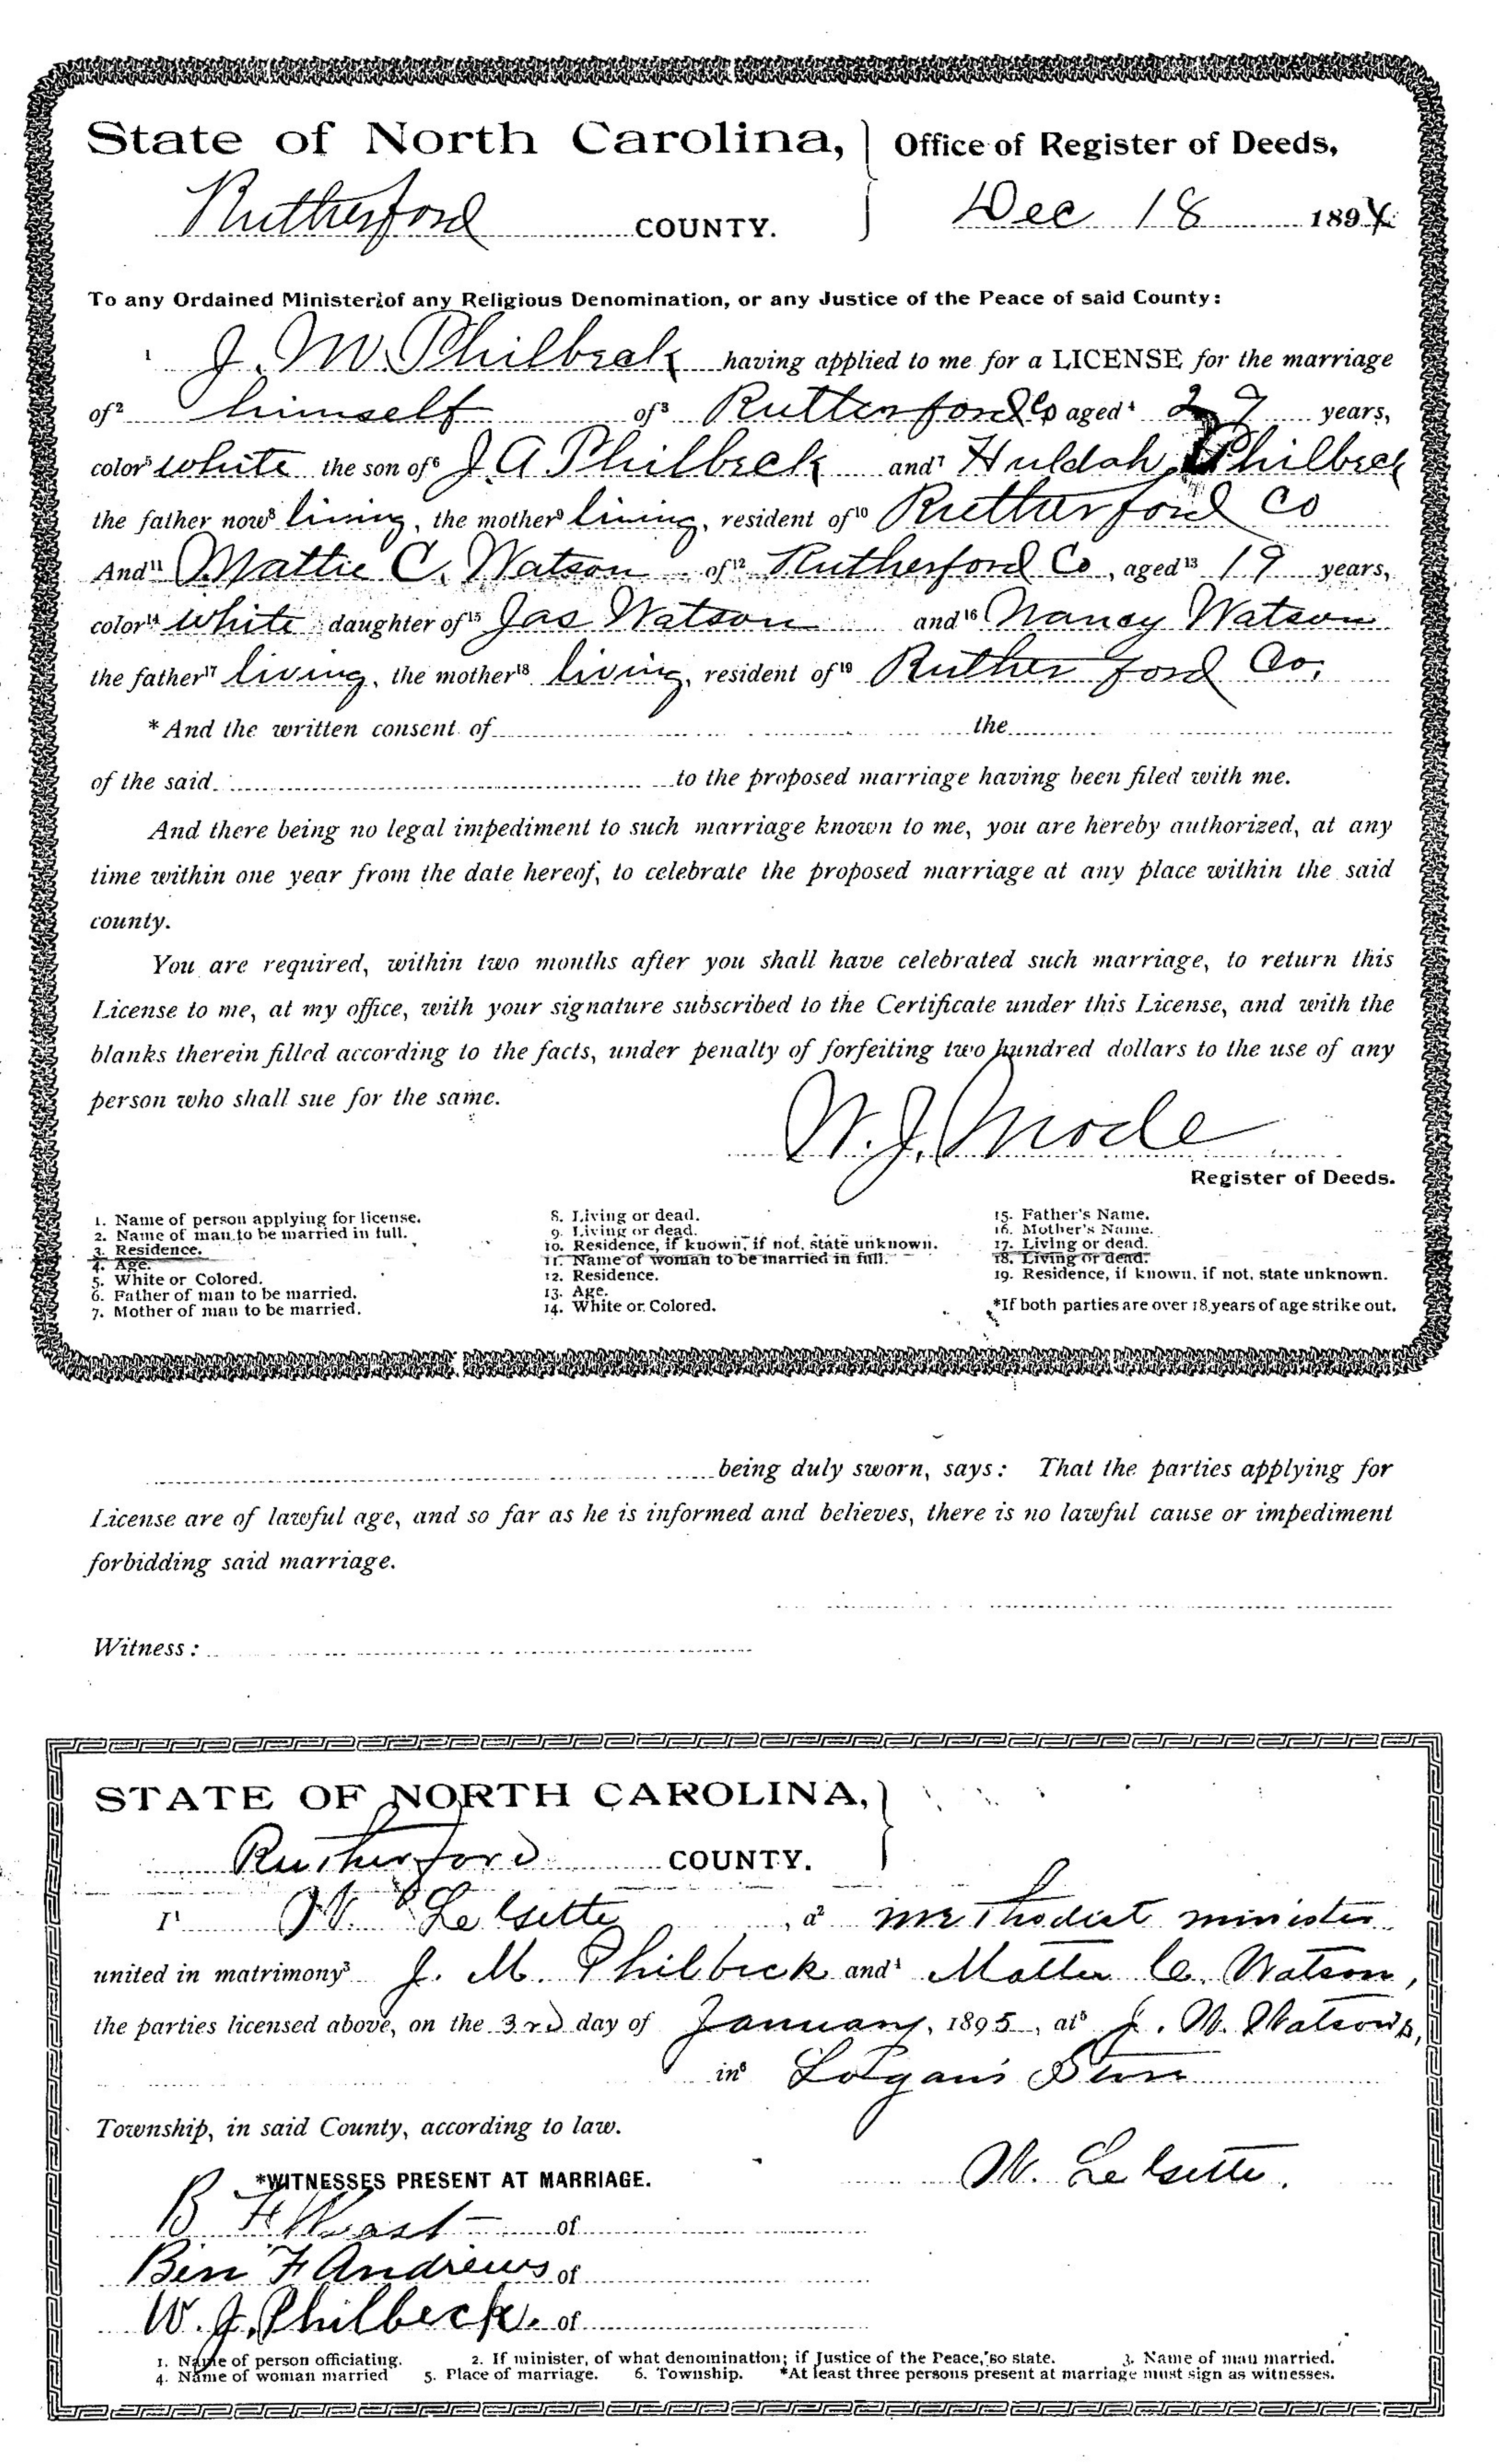 State of North Carolina, } Office of Register of Deeds,
Rutherford COUNTY. Dec 18 1894
To any Ordained Minister of any Religious Denomination, or any Justice of the Peace of said County:
1 J. M. Philbeck having applied to me for a LICENSE for the marriage
of2 himself of3 Rutherford Co aged4 27 years,
color5 white the son of6 J. A. Philbeck and7 Huldah Philbeck
the father now8 living, the mother9 living, resident of10 Rutherford Co
And11 Mattie C. Watson of12 Rutherford Co, aged13 19 years,
color14 white daughter of15 Jas Watson and16 Nancy Watson
the father17 living, the mother18 living, resident of19 Rutherford Co.
*And the written consent of the
of the said to the proposed marriage having been filed with me.
And there being no legal impediment to such marriage known to me, you are hereby authorized, at any
time within one year from the date hereof, to celebrate the proposed marriage at any place within the said
county.
You are required, within two months after you shall have celebrated such marriage, to return this
License to me, at my office, with your signature subscribed to the Certificate under this License, and with the
blanks therein filled according to the facts, under penalty of forfeiting two hundred dollars to the use of any
person who shall sue for the same.
W. J. Mode
Register of Deeds.
1. Name of person applying for license.
2. Name of man to be married in full.
3. Residence.
4. Age.
5. White or Colored.
6. Father of man to be married.
7. Mother of man to be married.
8. Living or dead.
9. Living or dead.
10. Residence, if known, if not, state unknown.
11. Name of woman to be married in full.
12. Residence.
13. Age.
14. White or Colored.
15. Father's Name.
16. Mother's Name.
17. Living or dead.
18. Living or dead.
19. Residence, if known, if not, state unknown.
*If both parties are over 18 years of age strike out.
being duly sworn, says: That the parties applying for
License are of lawful age, and so far as he is informed and believes, there is no lawful cause or impediment
forbidding said marriage.
Witness:
STATE OF NORTH CAROLINA, }
Rutherford COUNTY.
I1 W. , a2 Methodist minister
united in matrimony3 J. M. Philbeck and4 Mattie C. Watson,
the parties licensed above, on the 3rd day of January, 1895, at5 J. W. Watson's,
in6 Logan's Store
Township, in said County, according to law.
*WITNESSES PRESENT AT MARRIAGE. W.
B F of
Ben F Andrews of
W. J. Philbeck. of
1. Name of person officiating. 2. If minister, of what denomination; if Justice of the Peace, so state. 3. Name of man married.
4. Name of woman married 5. Place of marriage. 6. Township. *At least three persons present at marriage must sign as witnesses.